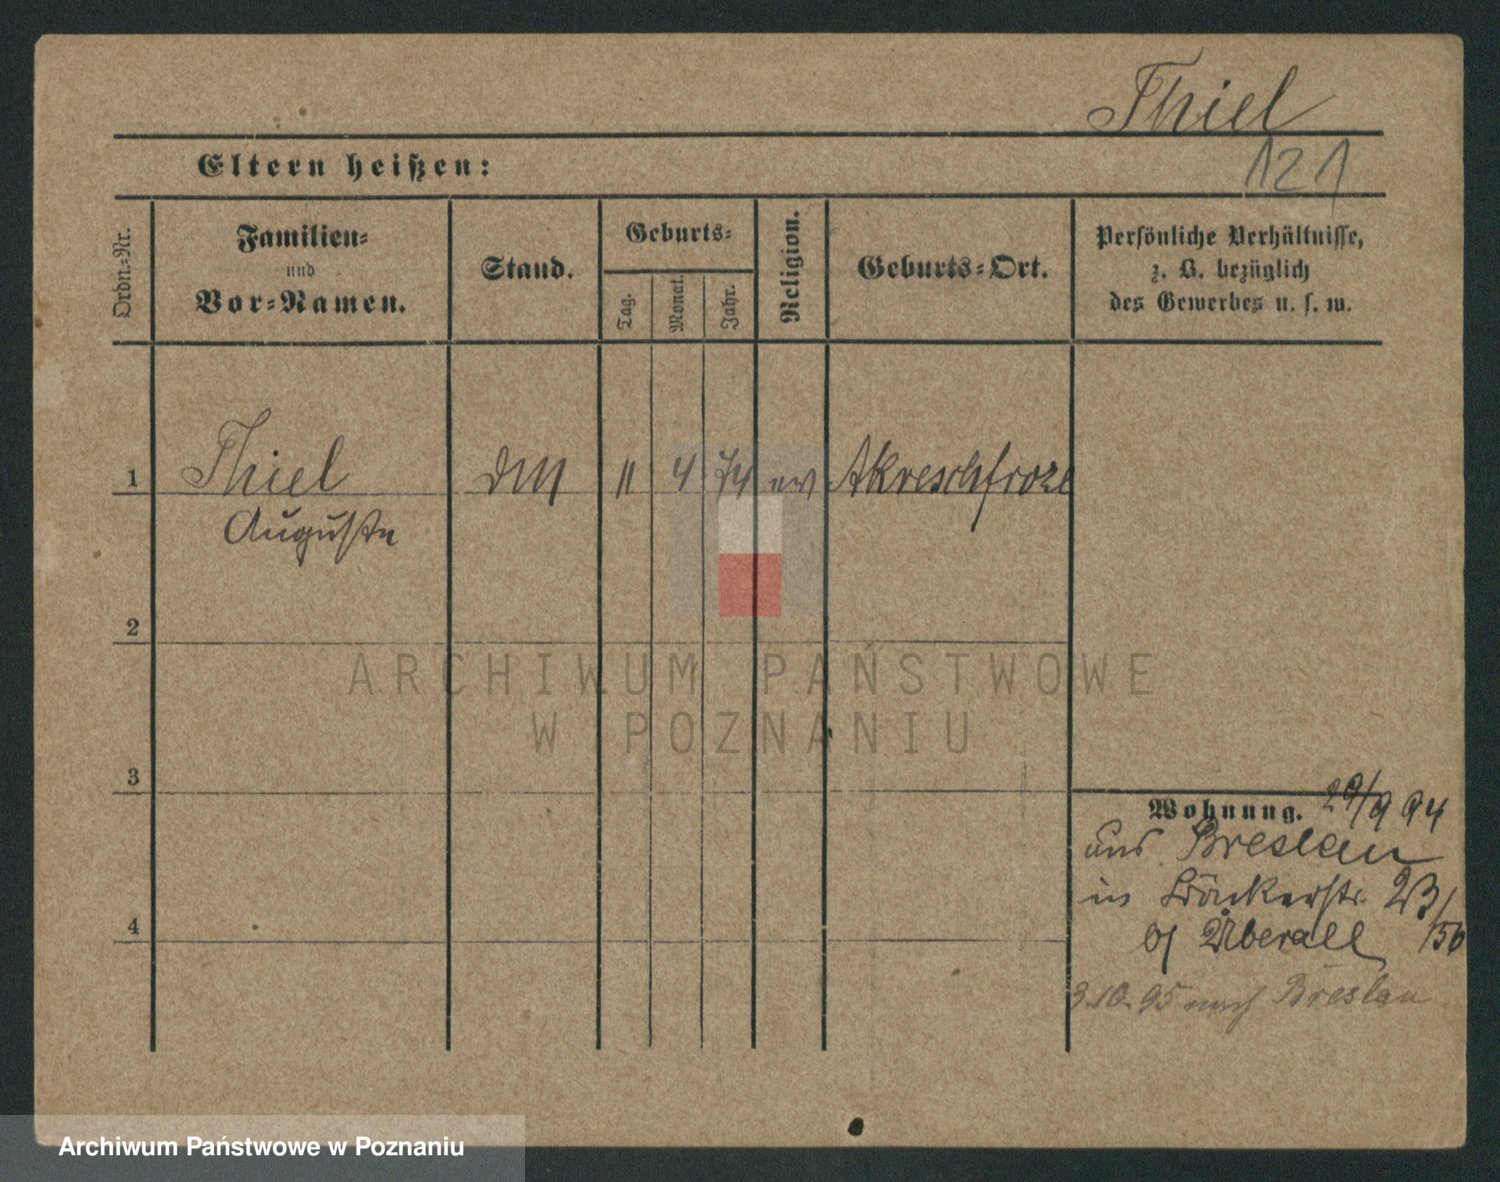 Thiel
121
Eltern heißen:
Ordn.-Nr.
Familien-
und
Vor-Namen.
Stand.
Geburts-
Tag.
Monat.
Jahr.
Religion.
Geburts-Ort.
Persönliche Verhältnisse,
z. B. bezüglich
des Gewerbes u. s. w.
1 Thiel 11 4 74 ev
Auguste
2
3
4
Wohnung. 29/9 94
aus Breslau
in Bäckerstr. 23/
Überall
3.10.95 nach Breslau
ARCHIWUM PAŃSTWOWE
W POZNANIU
Archiwum Państwowe w Poznaniu